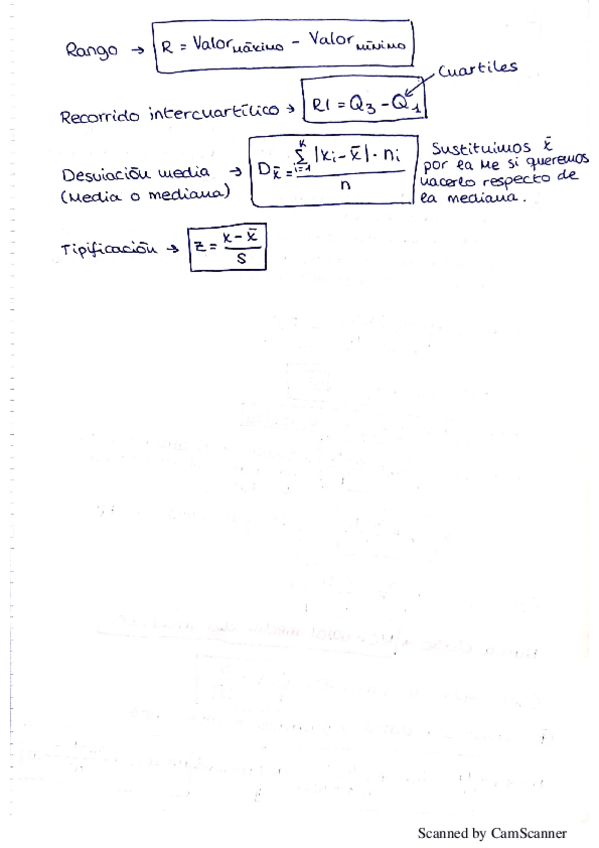 Rango → R = Valor máximo - Valor mínimo
Cuartiles
Recorrido intercuartílico → RI = Q₃ - Q₁
Desviación media → D_x̄ = Σ_{i=1}^{K} |xᵢ - x̄| · nᵢ / n
(Media o mediana)
Sustituimos x̄
por la Me si queremos
hacerlo respecto de
la mediana.
Tipificación → z = x - x̄ / S
Scanned by CamScanner